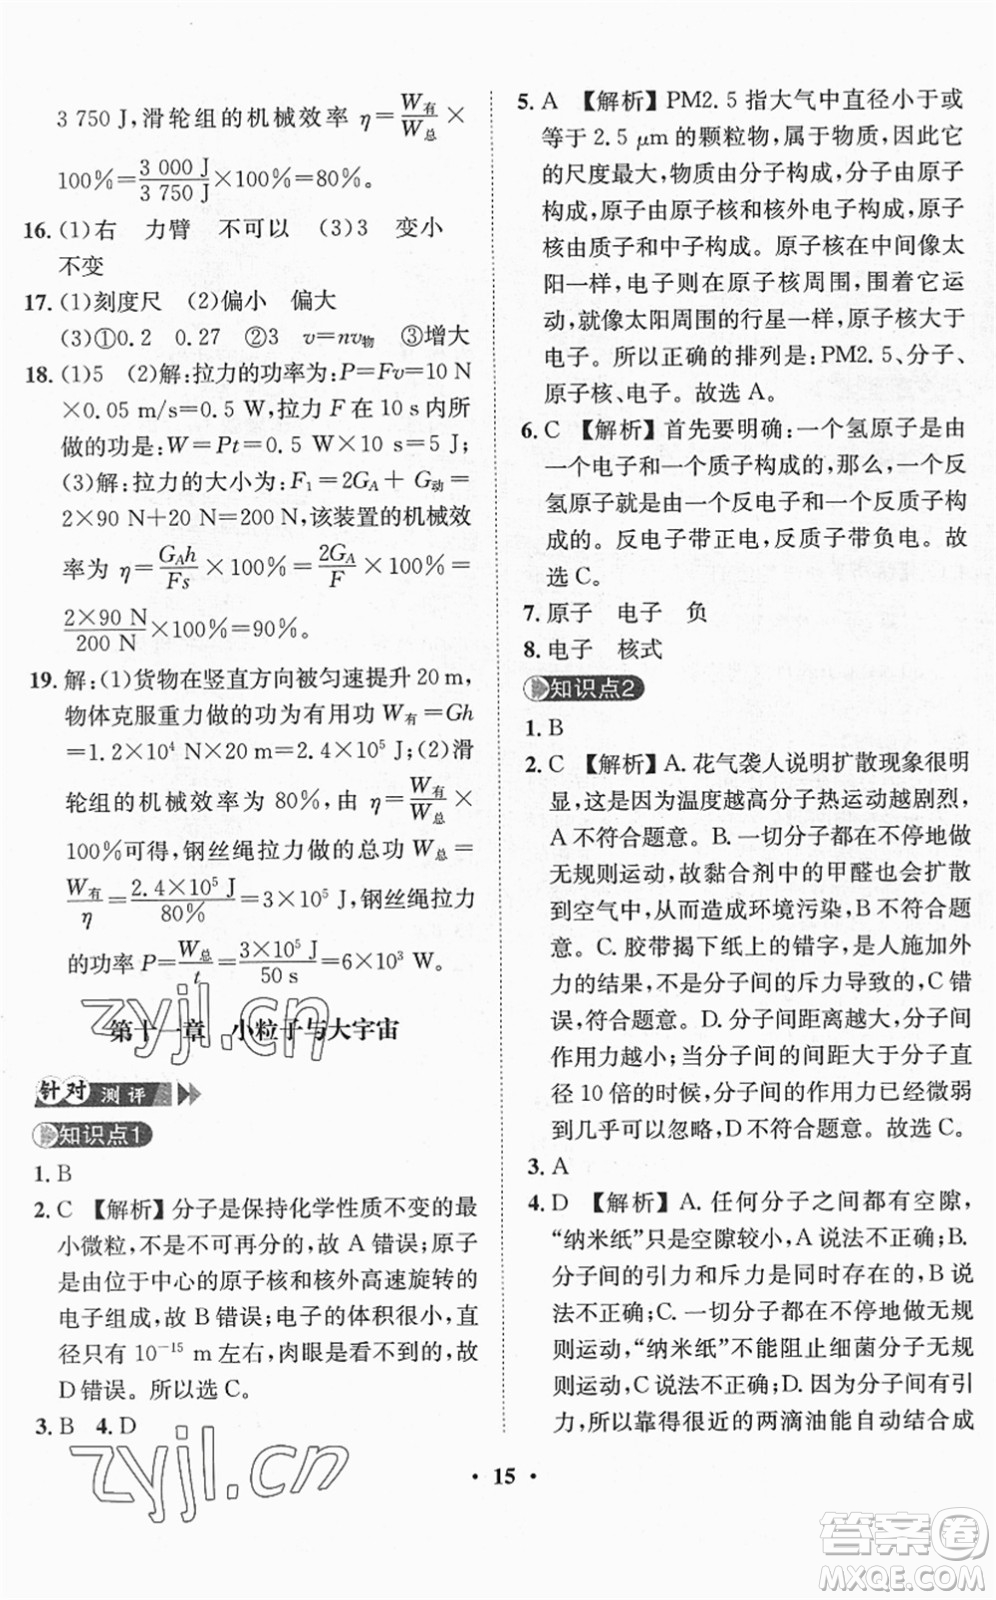 3 750 J,滑轮组的机械效率 η=W有/W总×
100%=3 000 J/3 750 J×100%=80%。
16. (1)右　力臂　不可以　(3)3　变小
不变
17. (1)刻度尺　(2)偏小　偏大
(3)①0.2　0.27　②3　v=nv物　③增大
18. (1)5　(2)解:拉力的功率为:P=Fv=10 N
×0.05 m/s=0.5 W,拉力 F 在 10 s 内所
做的功是:W=Pt=0.5 W×10 s=5 J;
(3)解:拉力的大小为:F₁=2G_A+G动=
2×90 N+20 N=200 N,该装置的机械效
率为 η=G_Ah/Fs×100%=2G_A/F×100%=
2×90 N/200 N×100%=90%。
19. 解:(1)货物在竖直方向被匀速提升 20 m,
物体克服重力做的功为有用功 W有=Gh
=1.2×10⁴ N×20 m=2.4×10⁵ J;(2)滑
轮组的机械效率为 80%,由 η=W有/W总×
100%可得,钢丝绳拉力做的总功 W总=
W有/η=2.4×10⁵ J/80%=3×10⁵ J,钢丝绳拉力
的功率 P=W总/t=3×10⁵ J/50 s=6×10³ W。
第十一章　小粒子与大宇宙
针对测评
知识点1
1. B
2. C　【解析】分子是保持化学性质不变的最
小微粒,可以再分的,故 A 错误;原子
是由位于中心的原子核和核外高速旋转的
电子组成,故 B 错误;电子的体积很小,直
径只有 10⁻¹⁵ m 左右,肉眼是看不到的,故
D 错误。所以选 C。
3. B　4. D
5. A　【解析】PM2.5 指大气中直径小于或
等于 2.5 μm 的颗粒物,属于物质,因此它
的尺度最大,物质由分子构成,分子由原子
构成,原子由原子核和核外电子构成,原子
核由质子和中子构成。原子核在中间像太
阳一样,电子则在原子核周围,绕核运动,
就像太阳周围的行星一样,原子核大于
电子。所以正确的排列是:PM2.5、分子、
原子核、电子。故选 A。
6. C　【解析】首先要明确:一个氢原子是由
一个电子和一个质子构成的,那么,一个反
氢原子就是由一个反电子和一个反质子构
成的。反电子带正电,反质子带负电。故
选 C。
7. 原子　电子　负
8. 电子　核式
知识点2
1. B
2. C　【解析】A. 花气袭人说明扩散现象很明
显,这是因为温度越高分子热运动越剧烈,
A 不符合题意。B. 一切分子都在不停地做
无规则运动,故黏合剂中的甲醛也会扩散
到空气中,从而造成环境污染,B 不符合题
意。C. 胶带揭下纸上的错字,是人施加外
力的结果,不是分子间的斥力导致的,C 错
误,符合题意。D. 分子间的距离越大,作用
力越小;当分子间的间距大于分子直
径 10 倍的时候,分子间的作用力已经微弱
到几乎可以忽略,D 不符合题意。故选 C。
3. A
4. D　【解析】A. 任何分子之间都有空隙,
“纳米纸”只是空隙较小,A 说法不正确;B.
分子间的引力和斥力是同时存在的,B 说
法不正确;C. 一切分子都在不停地做无规
则运动,“纳米纸”不能阻止细菌分子的无
规则运动,C 说法不正确;D. 分子间存在引
力,所以靠得很近的两滴油能自动结合成
• 15 •
zyjl.cn
zyjl.cn
答案圈
MXQE.COM